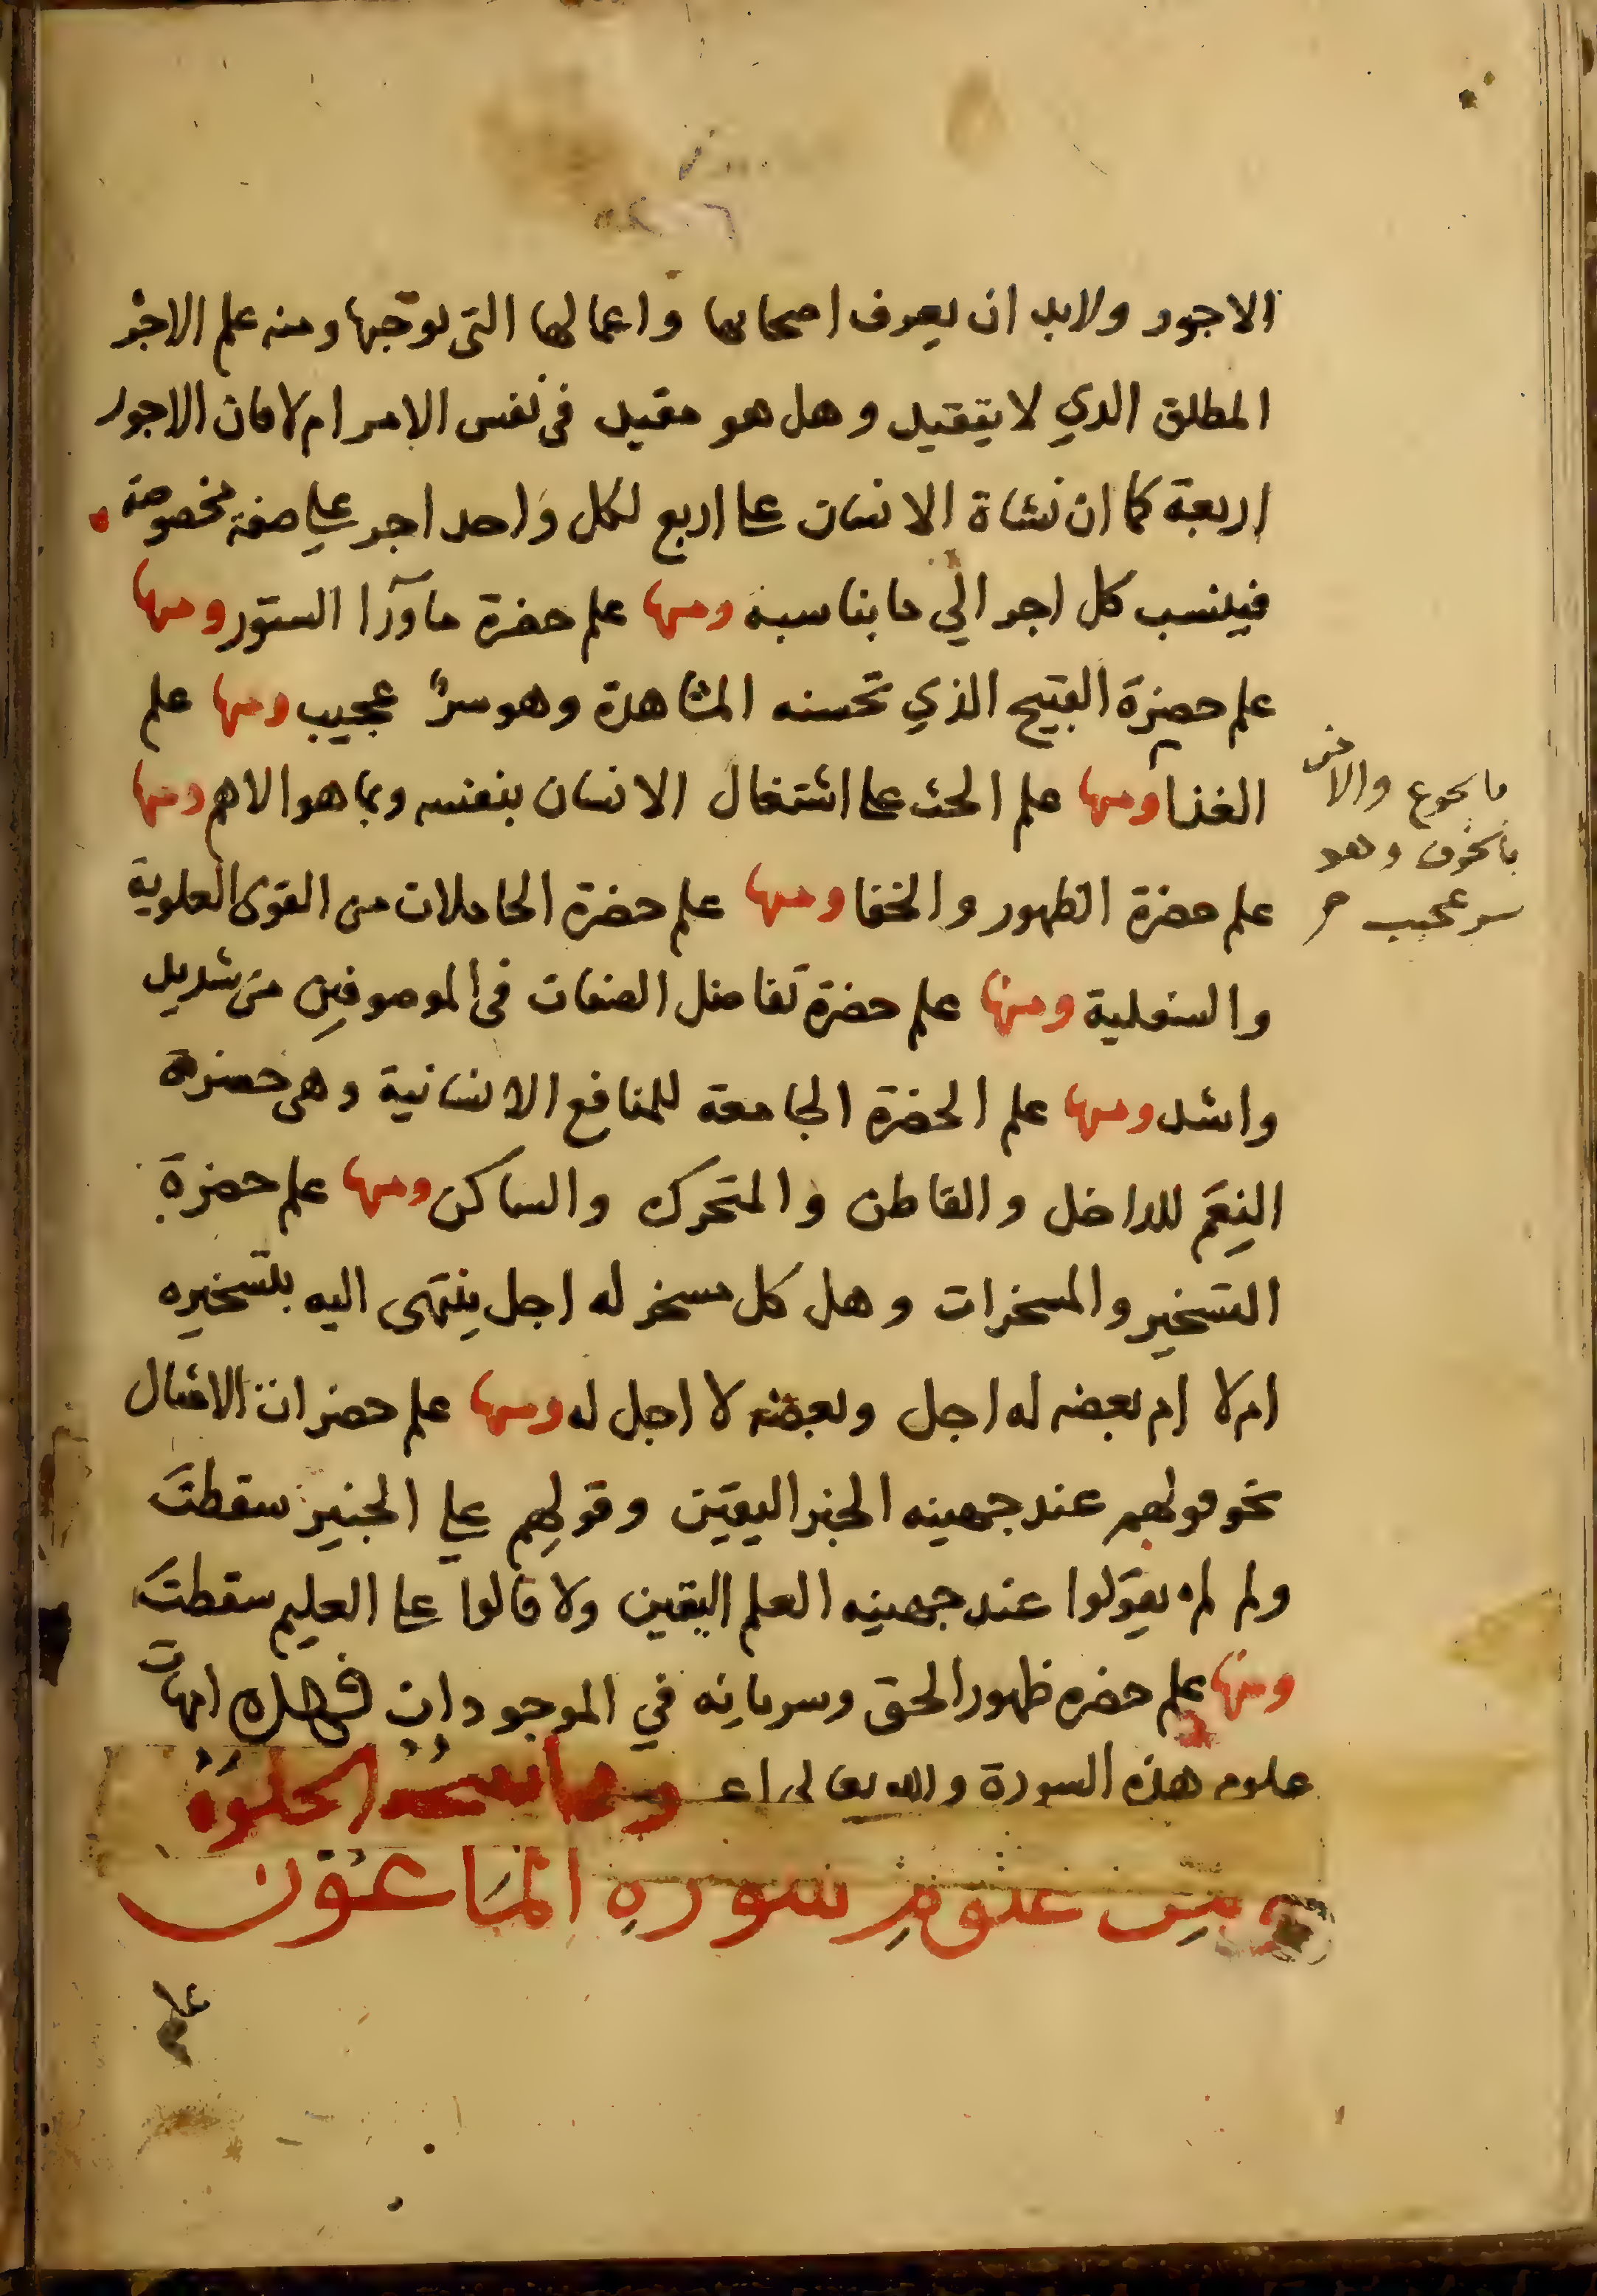 الاجور ولابد ان يعرف اصحابها واعمالها التى توجبها ومنه علم الاجر
المطلق الذي لا يتقيد وهل هو مقيد فى نفس الامر ام لا فان الاجور
اربعة كما ان نشاة الانسان على اربع لكل واحد اجر علي صفة مخصوصة
فينسب كل اجر الي ما يناسبه ومنها علم حضرة ما ورآا الستور ومنها
علم حضرة القبيح الذي تحسنه المشاهدة وهو سرٌ عجيب ومنها علم
الغذا ومنها علم الحث على اشتغال الانسان بنفسه وبما هو الاهم ومنها
علم حضرة الظهور والخفا ومنها علم حضرة الحاملات من القوى العلوية
والسفلية ومنها علم حضرة تفاضل الصفات فى الموصوفين من شديد
واشد ومنها علم الحضرة الجامعة للمنافع الانسانية وهى حضرة
النِعَم للداخل والقاطن والمتحرك والساكن ومنها علم حضرة
التسخير والمسخرات وهل كل مسخر له اجل ينتهى اليه بتسخيره
ام لا ام بعضه له اجل وبعضه لا اجل له ومنها علم حضرات الامثال
نحو قولهم عند جهينه الخبر اليقين وقولهم علي الخبير سقطتَ
ولم لم يقولوا عند جهينه العلم اليقين ولا قالوا على العليم سقطتَ
ومنها علم حضره ظهور الحق وسريانه في الموجودات فهذه امهات
علوم هذه السورة والله تعالى اعـ الخلوة
ومِن علومِ سورةِ الماعون
علم
ما بجوع والامن
بالخوف وهو
سر عجيب